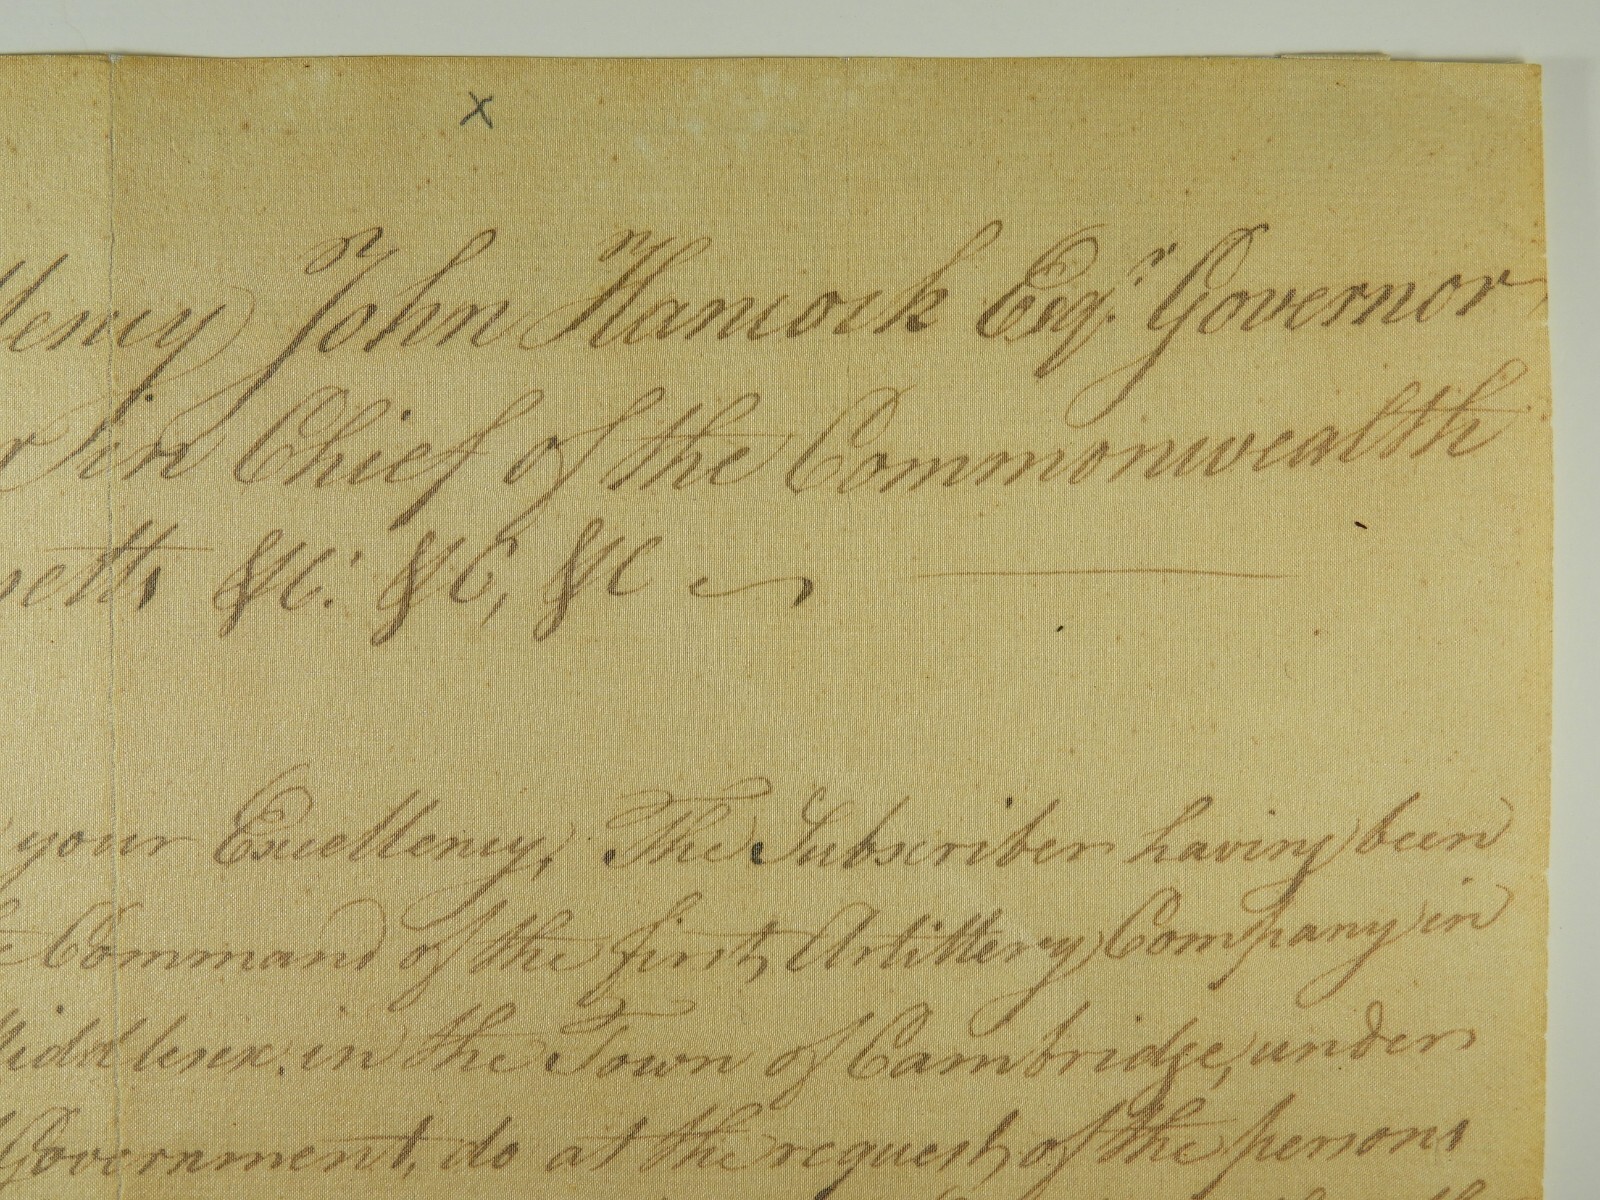 x
llency John Hancock Esqr. Governor
r in Chief of the Commonwealth
setts &C: &C, &C
your Excellency, The Subscriber having been
Command of the first Artillery Company in
Middlesex in the Town of Cambridge, under
Government, do at the request of the persons